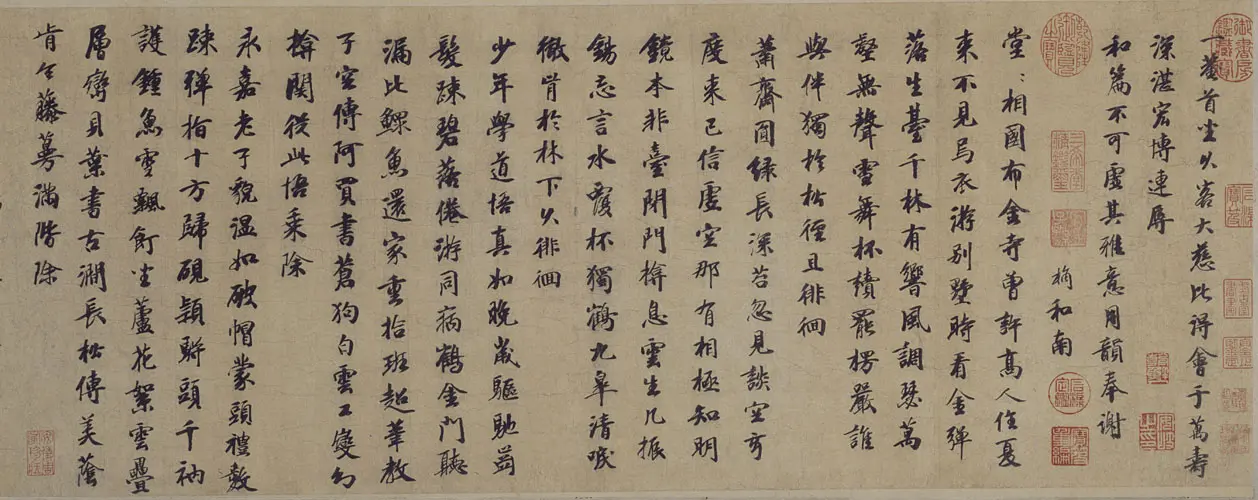 下艱首坐以寄大慈比得會于萬壽
深湛宏博連辱
和篇不可虛其雅意用韻奉謝
楠和南
堂〻相國布金寺曾許高人住夏
來不見烏衣游別墅時看金彈
落生臺千林有響風調瑟萬
壑無聲雪舞杯讀罷楞嚴誰
與伴獨於松徑且徘徊
蕭齋面綠長深苔忽見談空
度來已信虛空那有相極知明
鏡本非臺閉門揜息雲生几振
錫忘言水覆杯獨鶴九皋清唳
徹肯於林下久徘徊
少年學道悟真如晚歲驅馳
髮疎碧落倦游同病鶴金門聽
漏比鰥魚還家重拾班超筆教
子空傳阿買書蒼狗白雲工變幻
揜關從此悟乘除
永嘉老子貌溫如破帽蒙頭禮數
疎彈指十方歸硯頴聯頭千衲
護鍾魚雪飄飣坐蘆花絮雲疊
層巒貝葉書古澗長松傳美蔭
肯令藤蔓滿階除